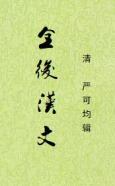 全後漢文
清 严可均辑